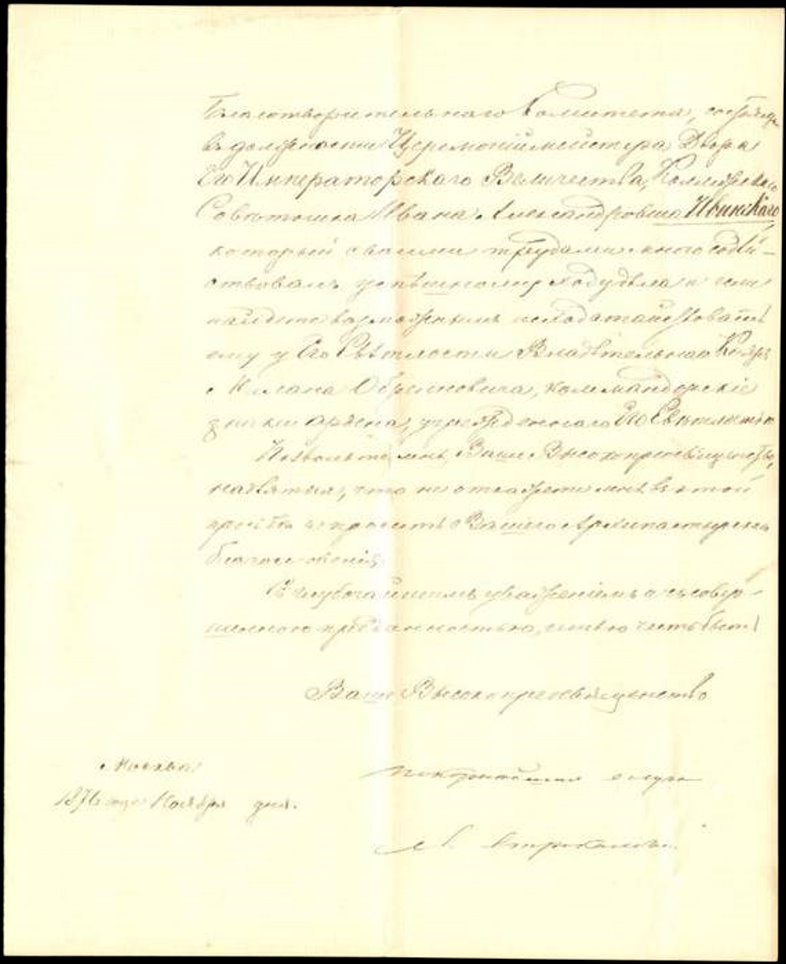 Благотворительнаго Комитета, состоящаго
въ должности Церемоніймейстера Двора
Его Императорскаго Величества, Коллежскаго
Совѣтника Ивана Александровича
который своими трудами много содѣй-
ствовалъ успѣшному ходу дѣла и если
найдете возможнымъ исходатайствовать
ему у Его Свѣтлости Владѣтельнаго Князя
Милана Обреновича, коммандорскіе
знаки ордена, учрежденнаго Его Свѣтлостью
Позвольте мнѣ, Ваше Высокопреосвященство,
надѣяться, что не откажете мнѣ въ этой
просьбѣ и просить Вашего Архипастырскаго
благословенія
Съ глубочайшимъ уваженіемъ и съ совер-
шенною преданностью, имѣю честь быть
Ваше Высокопреосвященство
покорнѣйшимъ слугою
Москва
1876 года Ноября дня.